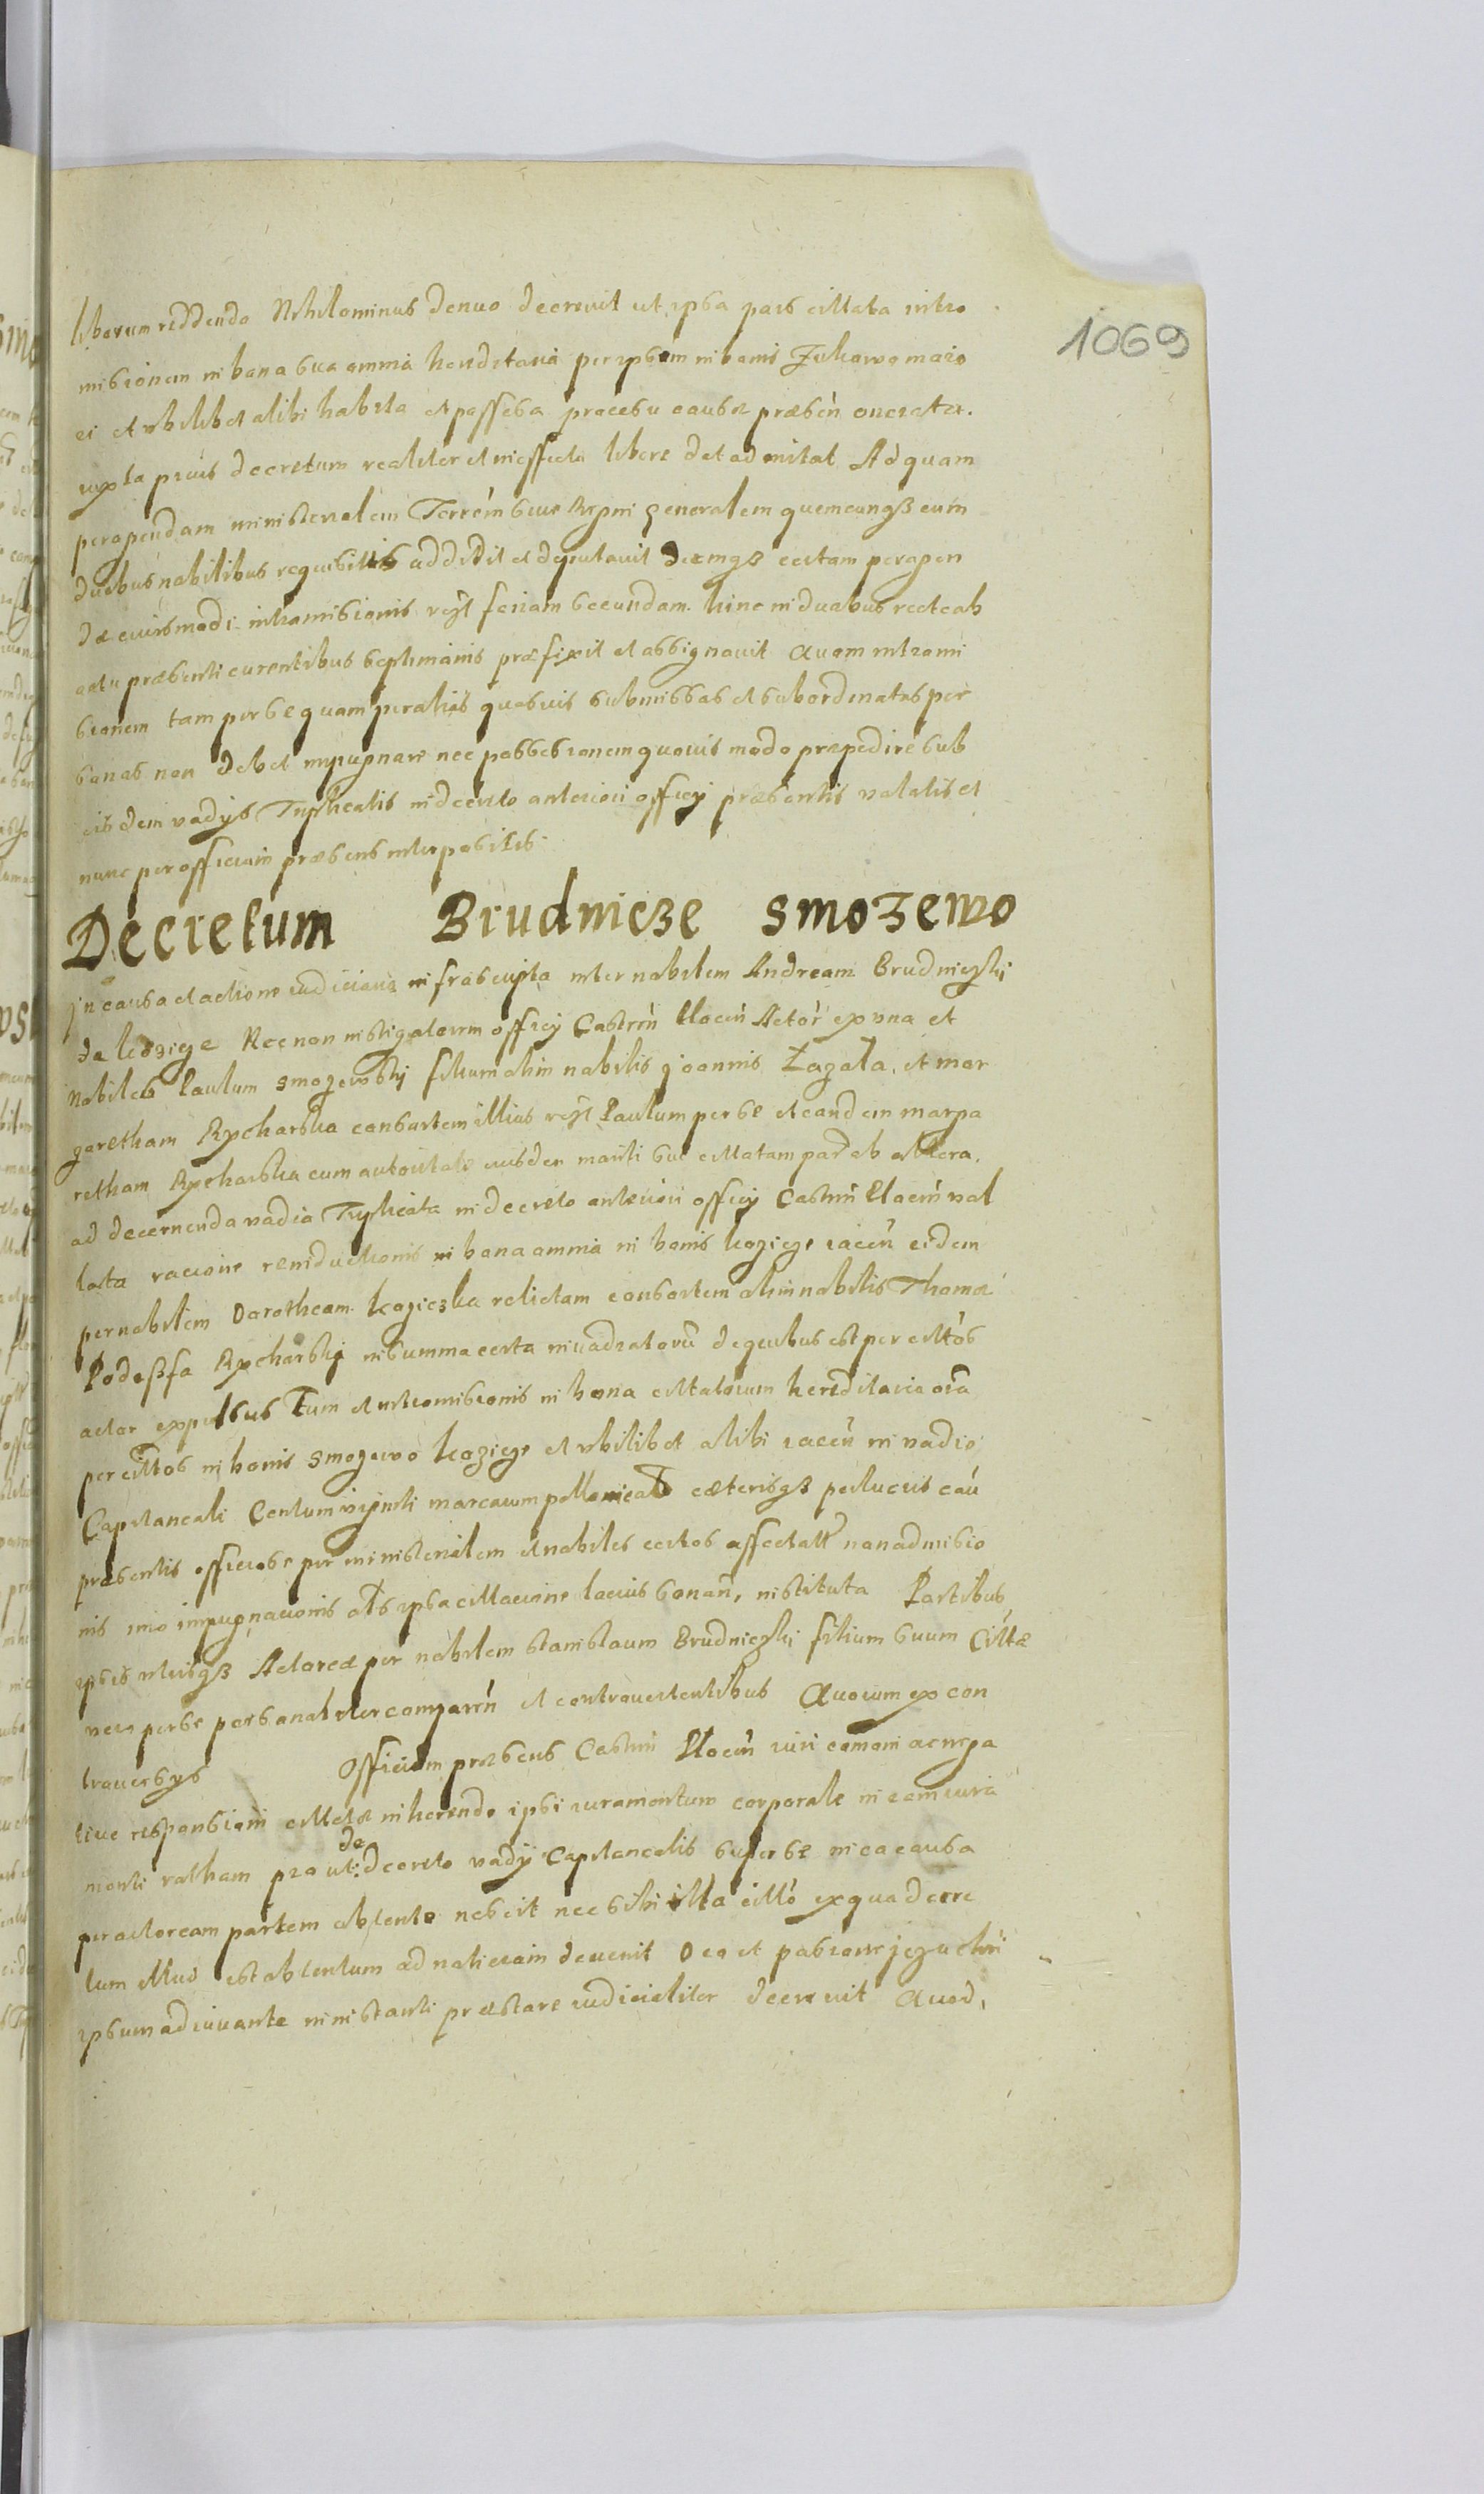 1069
liberum reddendo Nihilominus denuo decrevit ut ipsa pars cittata intro
misionem in bona sua omnia hereditaria per ipsam in bonis Zukowo maio
ri et ubilibet alibi habita et possesa pro cesu causæ præsen̄ onerata.
iuxta prius decretum realiter et in effectu libere det admitat Ad quam
peragendam ministerialem Terrēm sive Regni generalem quemcunqз cum
duobus nobilibus requisitis addidit et deputavit Termqз certam peragen
dæ eiusmodi intromisionis feriam secundam hinc in duabus recte ab
actu præsenti curentibus septimanis præfixit et assignavit Quam intromi
sionem tam per se quam per alias quasvis submissas et subordinatas per
sonas non debet impugnare nec possessionem quovis modo præpedire sub
eisdem vadys Triplicatis in decreto anteriori officy præsentis valatis et
nunc per officium præsens interpositis
Decretum Brudnicze smozewo
jn causa et actione iudiciaria infrascripta inter nobilem Andream Brudniczki
de kozicze Necnon instigatorem officy Castren̄ Plocen̄ Actor̄ ex una et
Nobiles Paulum smozewski filium olim nobilis joannis Łazata, et mar
garetham Rycharska consortem illius Paulum per se et eandem marga
retham Rycharska cum autoritate eiusdem mariti sui cittatam par̄ ab altera.
ad decernenda vadia Triplicata in decreto anteriori officy Castren̄ Plocen̄ val
lata racione reinductionis in bona omnia in bonis kozicze iacen̄ eidem
per nobilem Dorotheam koziczka relictam consortem olim nobilis Thomæ
Rycharski in summa certa inuadiatorū de quibus est per citt̄os
actor expulsus Tum et intromisionis in bona cittatorum hereditaria oīa
per citt̄os in bonis smozewo kozicze et ubilibet alibi iacen̄ in vadio
Capitaneali Centum viginti marcarum pollonicał cæterisqз perlucris cau̅
præsentis officiose per ministerialem et nobiles certos affectatt non admisio
nis imo impugnacionis ipsa cittacione lacius sonan̄, instituta Partibus,
ipsis utrisqз Actorea per nobilem stanislaum Brudniczki filium suum Cittæ
vero per se personaliter comparen̄ et controvertentibus Quorum ex con
traversys Officium præsens Castren̄ Plocen̄ iuri comuni ac nega
tivæ responsioni cittatæ inherendo ipsi iuramentum corporale in eam iura
menti rotham pro ut: de decreto vady Capitanealis super se in ea causa
per actoream partem obtento nescit nec sibi illa citt̄o ex qua decre
tum illud est obtentum ad noticiam devenit Deo et pasione jezu chri̅
ipsum adiuvante in instanti præstare iudicialiter decrevit Quod,